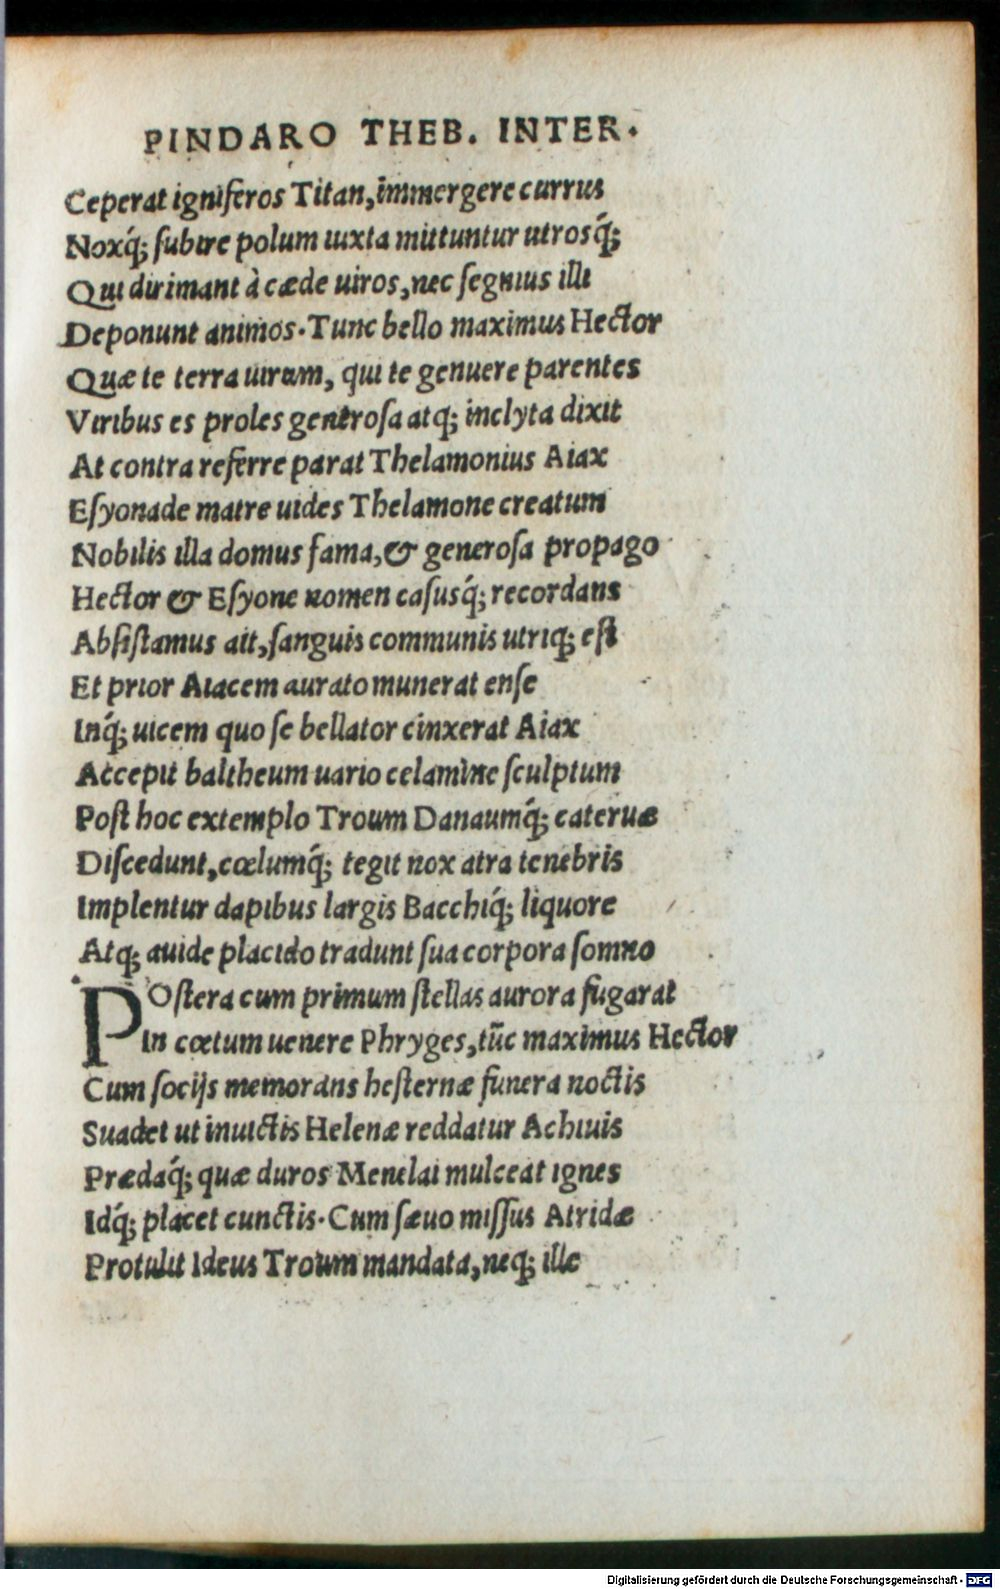 PINDARO THEB. INTER.
Ceperat igniferos Titan, immergere currus
Noxq́; ſubire polum iuxta mittuntur utrosq́;
Qui dirimant à cæde uiros, nec ſegnius illi
Deponunt animos. Tunc bello maximus Hector
Quæ te terra uirum, qui te genuere parentes
Viribus es proles generoſa atq; inclyta dixit
At contra referre parat Thelamonius Aiax
Eſyona de matre uides Thelamone creatum
Nobilis illa domus fama, & generoſa propago
Hector & Eſyone nomen caſusq́; recordans
Abſiſtamus ait, ſanguis communis utriq; eſt
Et prior Aiacem aurato munerat enſe
Inq́; uicem quo ſe bellator cinxerat Aiax
Accepit baltheum uario celamine ſculptum
Poſt hoc extemplo Troum Danaumq́; cateruæ
Diſcedunt, cœlumq́; tegit nox atra tenebris
Implentur dapibus largis Bacchiq́; liquore
Atq; auide placido tradunt ſua corpora ſomno
POſtera cum primum ſtellas aurora fugarat
In cœtum uenere Phryges, tūc maximus Hector
Cum ſocijs memorans heſternæ funera noctis
Suadet ut inuictis Helenæ reddatur Achiuis
Prædaq́; quæ duros Menelai mulceat ignes
Idq́; placet cunctis. Cum ſæuo miſſus Atridæ
Protulit Ideus Troum mandata, neq; ille
Digitalisierung gefördert durch die Deutsche Forschungsgemeinschaft - DFG